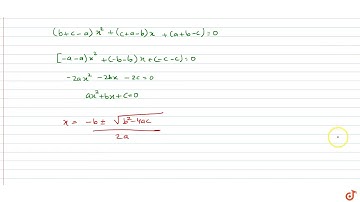 (b+c-a) x² + (c+a-b)x + (a+b-c)=0
[-a-a)x² + (-b-b)x + (-c-c)=0
-2ax² -2bx -2c=0
ax²+bx+c=0
x = -b ± √b²-4ac
2a